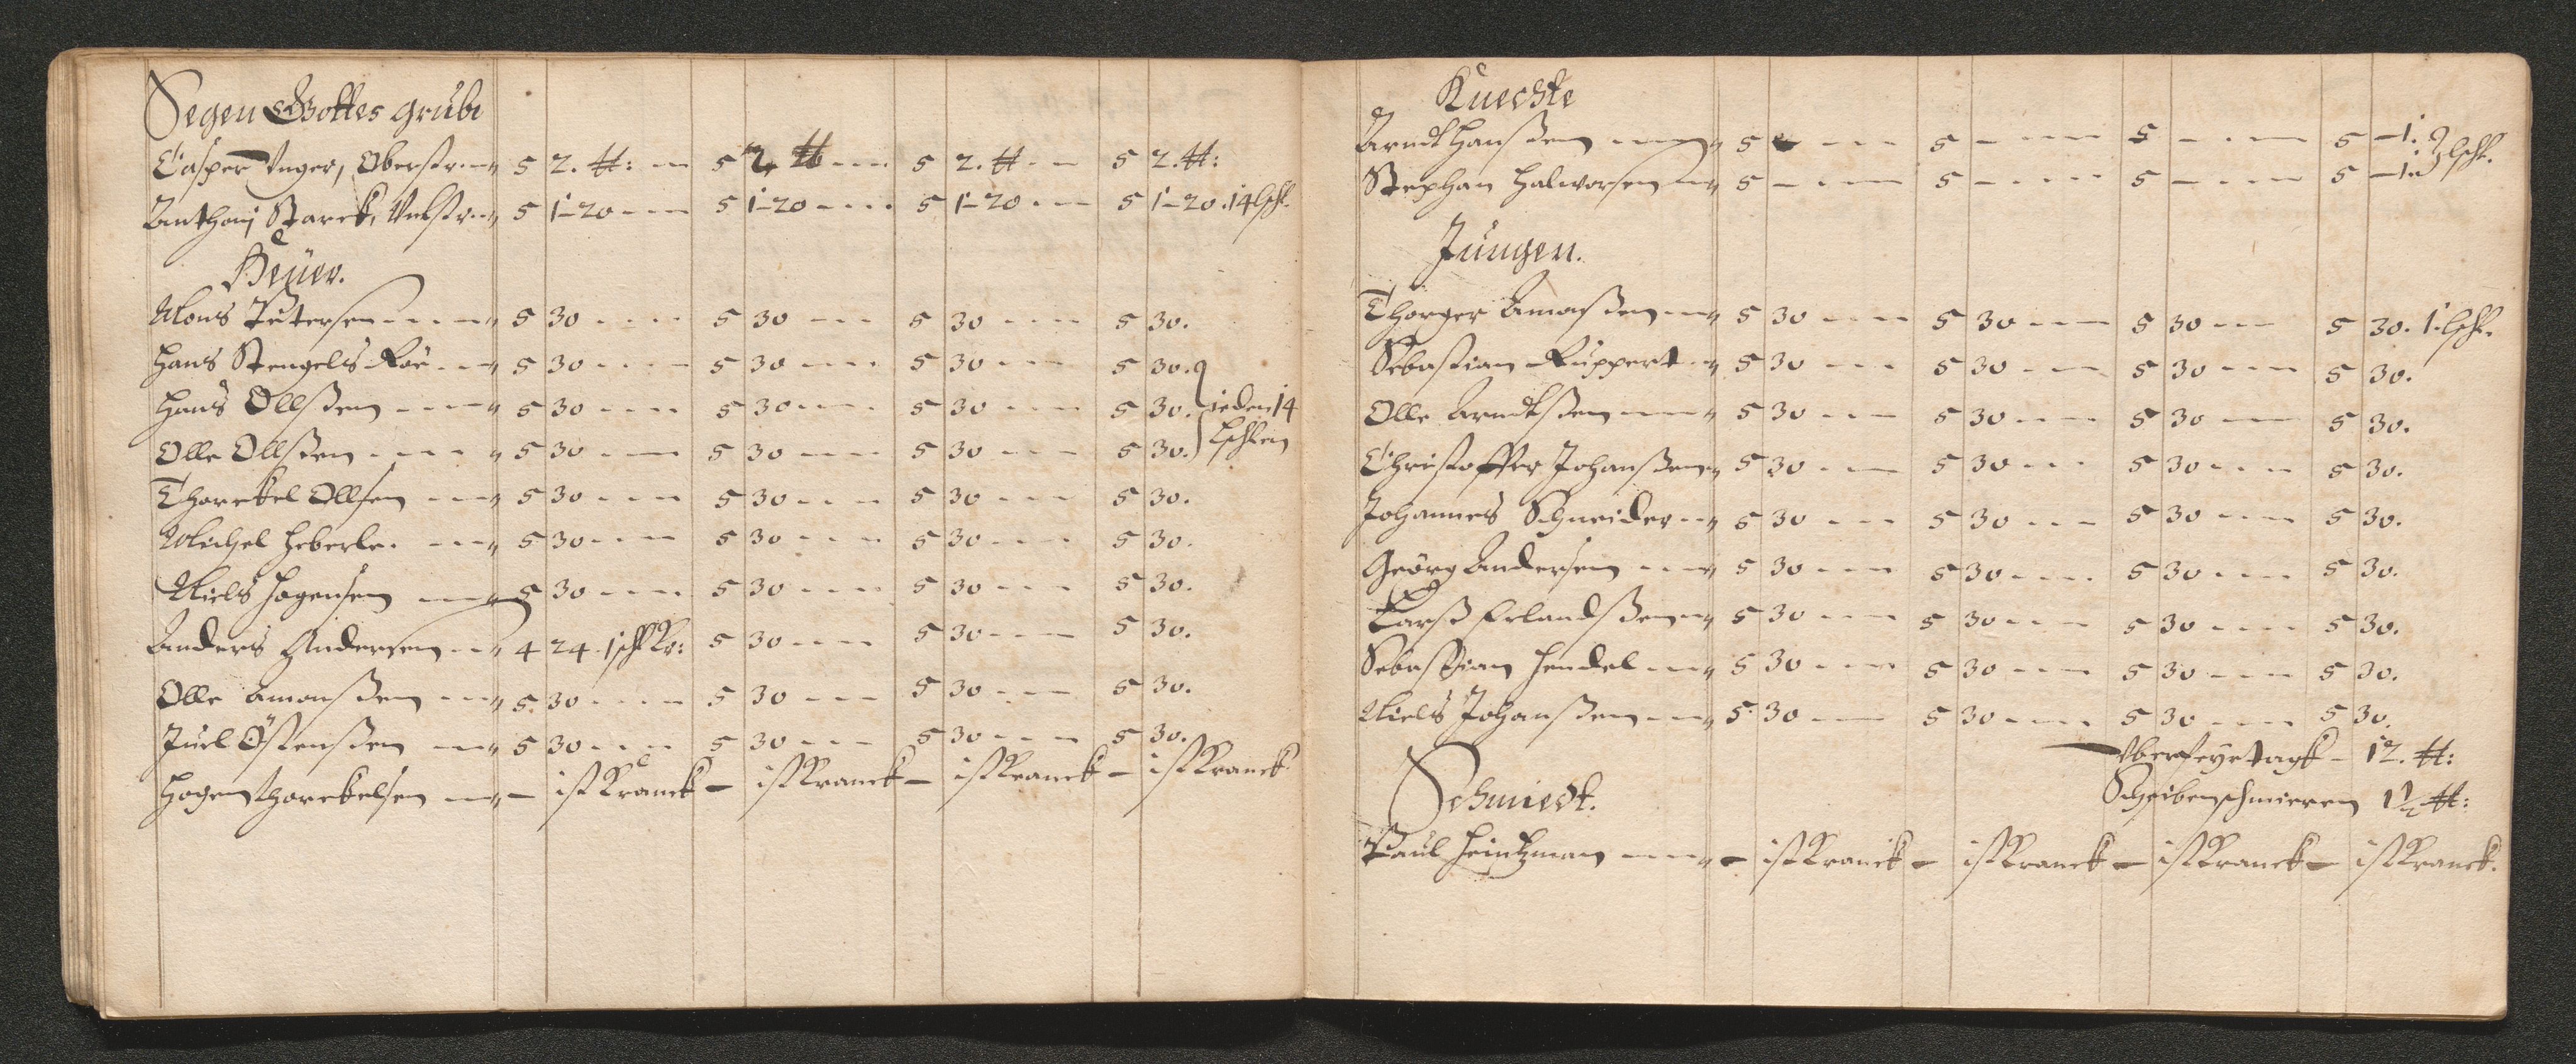 Segen Gottes Grube
Casper Unger, Oberstr. 5 2. tt: 5 2 tt 5 2. tt 5 2. tt:
Anthoni Starck, 5 1-20 5 1-20 5 1-20 5 1-20. 14 lschl.
Heüer.
Mons Petersen 5 30 5 30 5 30 5 30.
Hans Stengels 5 30 5 30 5 30 5 30.
Hans Ollßen 5 30 5 30 5 30 5 30. ieden 14
Olle Ollßen 5 30 5 30 5 30 5 30. lschl ein
Thorekel Ollsen 5 30 5 30 5 30 5 30.
Michel Heberle. 5 30 5 30 5 30 5 30.
Niels Hogensen 5 30 5 30 5 30 5 30.
Anders Andersen 4 24. 5 30 5 30 5 30.
Olle Amonßen 5 30 5 30 5 30 5 30.
Juel Östenßen 5 30 5 30 5 30 5 30.
Hogen Thorekelsen – ist Kranck – ist Kranck – ist Kranck – ist Kranck
Knechte
Arndt Hanßen 5 – 5 – 5 – 5 –1.
Stephan Halworsen 5 – 5 – 5 – 5 –1. lschl.
Jungen.
Thorger Amonßen 5 30 5 30 5 30 5 30. 1. lschl.
Sebastian Ruppert 5 30 5 30 5 30 5 30.
Olle Arndtßen 5 30 5 30 5 30 5 30.
Christoffer Johanßen 5 30 5 30 5 30 5 30.
Johannes Schneider 5 30 5 30 5 30 5 30.
Geörg Andersen 5 30 5 30 5 30 5 30.
Larß Erlandßen 5 30 5 30 5 30 5 30.
Sebastian Hendel 5 30 5 30 5 30 5 30.
Niels Johanßen 5 30 5 30 5 30 5 30.
Uberfeyrtagk – 12. tt:
Schmiedt. Scheibenschmieren 1½ tt:
Paul Heintzman – ist Kranck – ist Kranck – ist Kranck – ist Kranck.